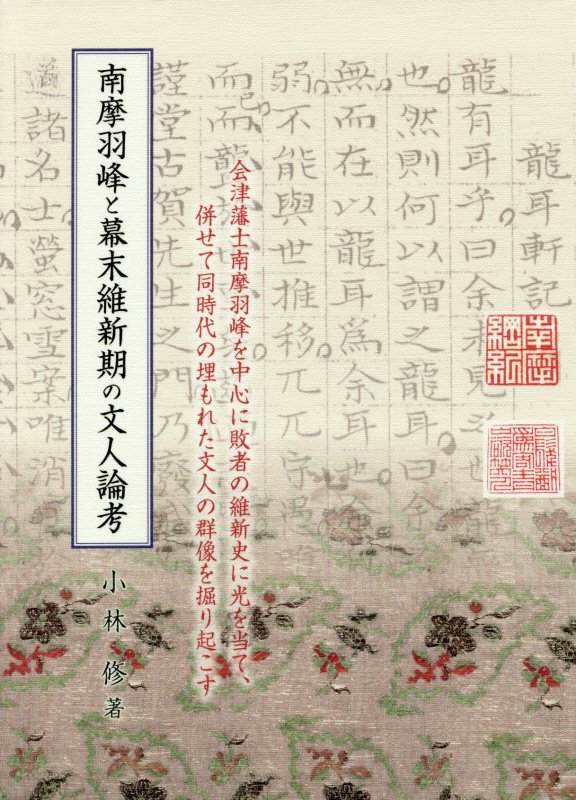 龍耳軒記
龍有耳乎曰余
也然則何以謂之龍耳曰余
無而在以龍耳為余耳也
弱不能與世推移兀兀
而而聾
謹堂古賀先生之門乃廢
諸名士螢窓雪案唯消
南摩
綱紀
会津藩士南摩羽峰を中心に敗者の維新史に光を当て、
併せて同時代の埋もれた文人の群像を掘り起こす
南摩羽峰と幕末維新期の文人論考
小林 修 著